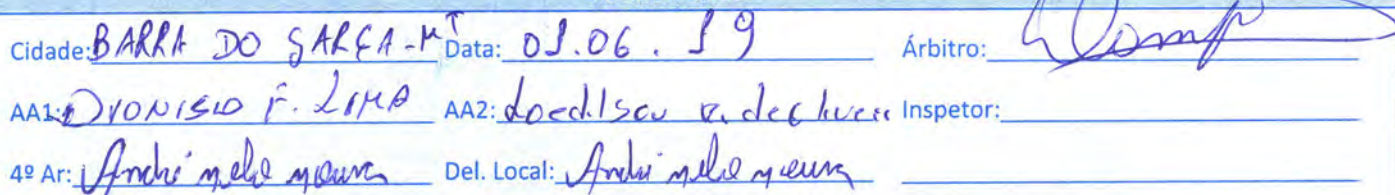 Cidade: BARRA DO GARÇA-MT Data: 01.06.19 Árbitro:
AA1: DIONISIO F. LIMA AA2: Inspetor:
4º Ar: André melo moura Del. Local: André melo moura